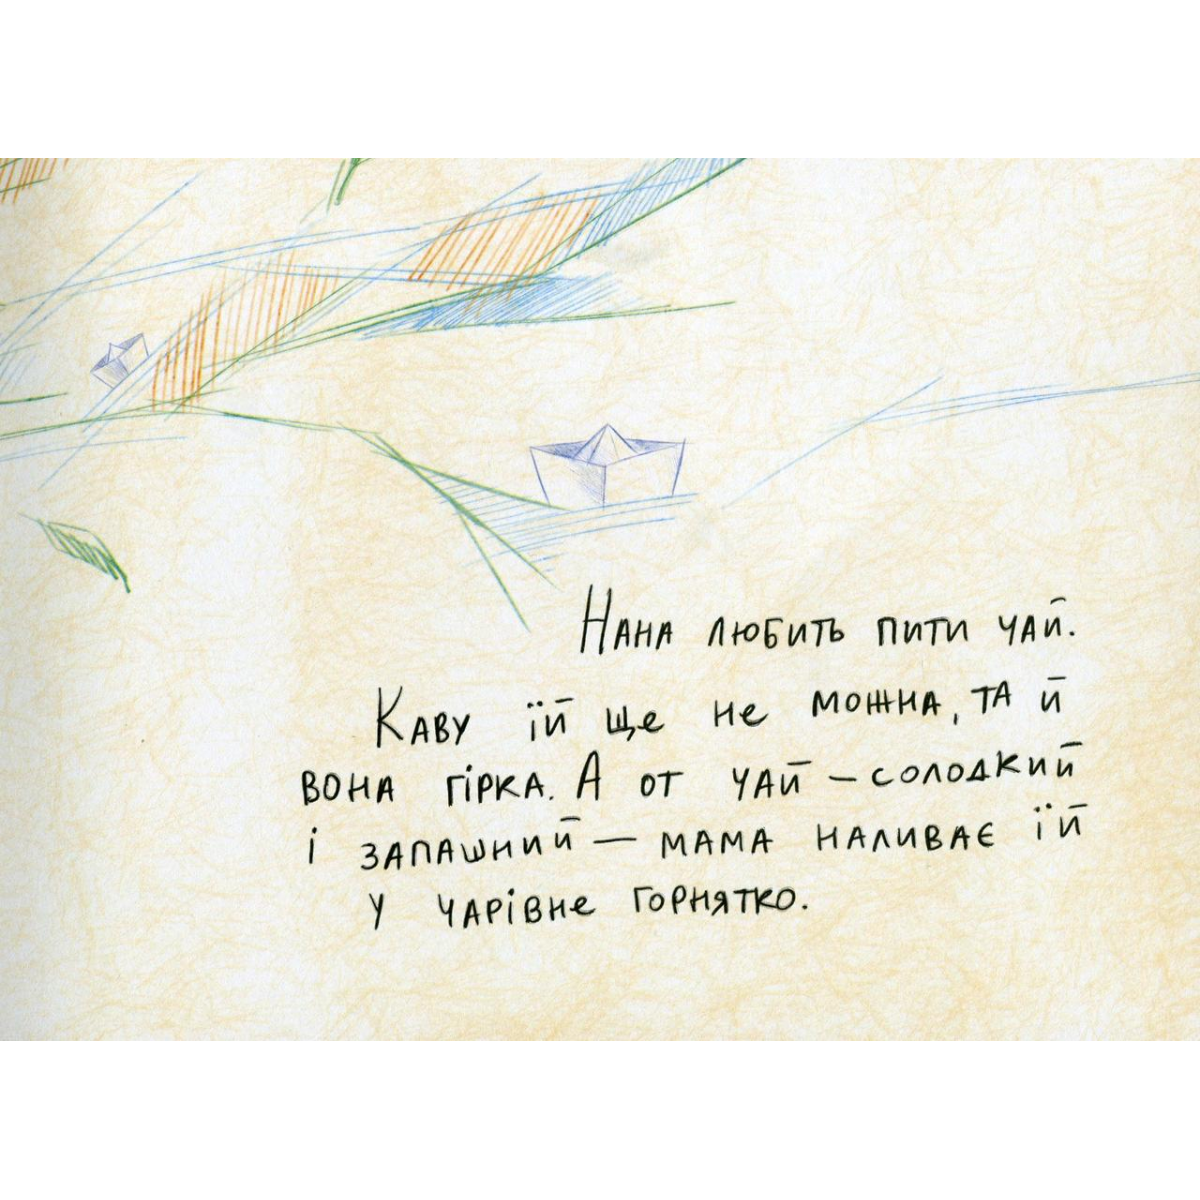 Нана любить пити чай.
Каву їй ще не можна, та й
вона гірка. А от чай – солодкий
і запашний – мама наливає їй
у чарівне горнятко.